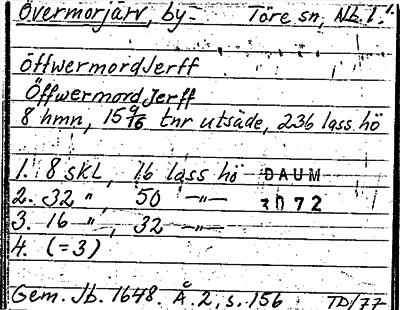 Övermorjärv, by- Töre sn, Nb. l.
Öffwermordjerff
Öffwermordjerff
8 hmn, 15 9/16 tnr utsäde, 236 lass hö
1. 8 skl, 16 lass hö DAUM
2. 32 ", 50 -"- 3072
3. 16 ", 32 -"-
4. (=3)
Gem. Jb. 1648. Å. 2, s. 156 TD/77